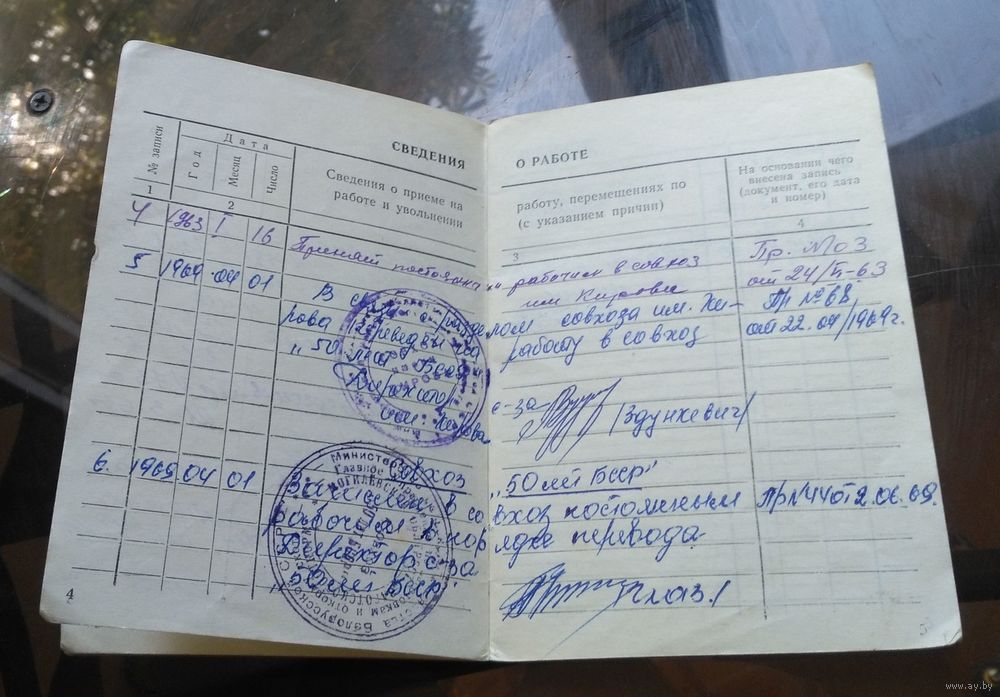 СВЕДЕНИЯ О РАБОТЕ
№ записи
Дата
Год
Месяц
Число
Сведения о приеме на работу, перемещениях по
работе и увольнении (с указанием причин)
На основании чего
внесена запись
(документ, его дата
и номер)
1 2 3 4
4 1963 I 16 Принят постоянным рабочим в совхоз Пр. №03
им Кирова от 24/II-63
5 1969 04 01 В связи с разделом совхоза им. Ки- Пр №68
рова переведен на работу в совхоз от 22.04/1969г.
"50 лет БССР"
Директор с-за
им. Кирова (Здункевич)
Совхоз "50 лет БССР"
6. 1969 04 01 Зачислен в совхоз постоянным Пр №44 от 2.06.69.
рабочим в порядке перевода
Директор с-за
"50 лет БССР"
Министерство
Главное
4
5
www.ay.by